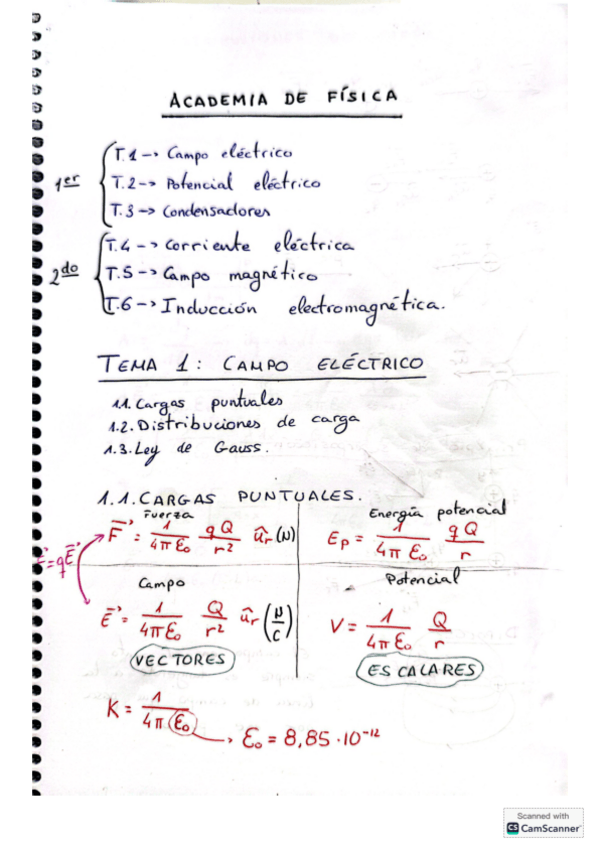 ACADEMIA DE FÍSICA
1er
T.1 -> Campo eléctrico
T.2 -> Potencial eléctrico
T.3 -> Condensadores
2do
T.4 -> Corriente eléctrica
T.5 -> Campo magnético
T.6 -> Inducción electromagnética.
TEMA 1: CAMPO ELÉCTRICO
1.1. Cargas puntuales
1.2. Distribuciones de carga
1.3. Ley de Gauss.
1.1. CARGAS PUNTUALES.
Fuerza
F⃗ = 1/(4π ε₀) qQ/r² û_r (N)
Energía potencial
E_p = 1/(4π ε₀) qQ/r
F⃗ = qE⃗
Campo
E⃗ = 1/(4π ε₀) Q/r² û_r (N/C)
VECTORES
Potencial
V = 1/(4π ε₀) Q/r
ESCALARES
K = 1/(4π ε₀) -> ε₀ = 8,85 · 10⁻¹²
Scanned with
CS CamScanner